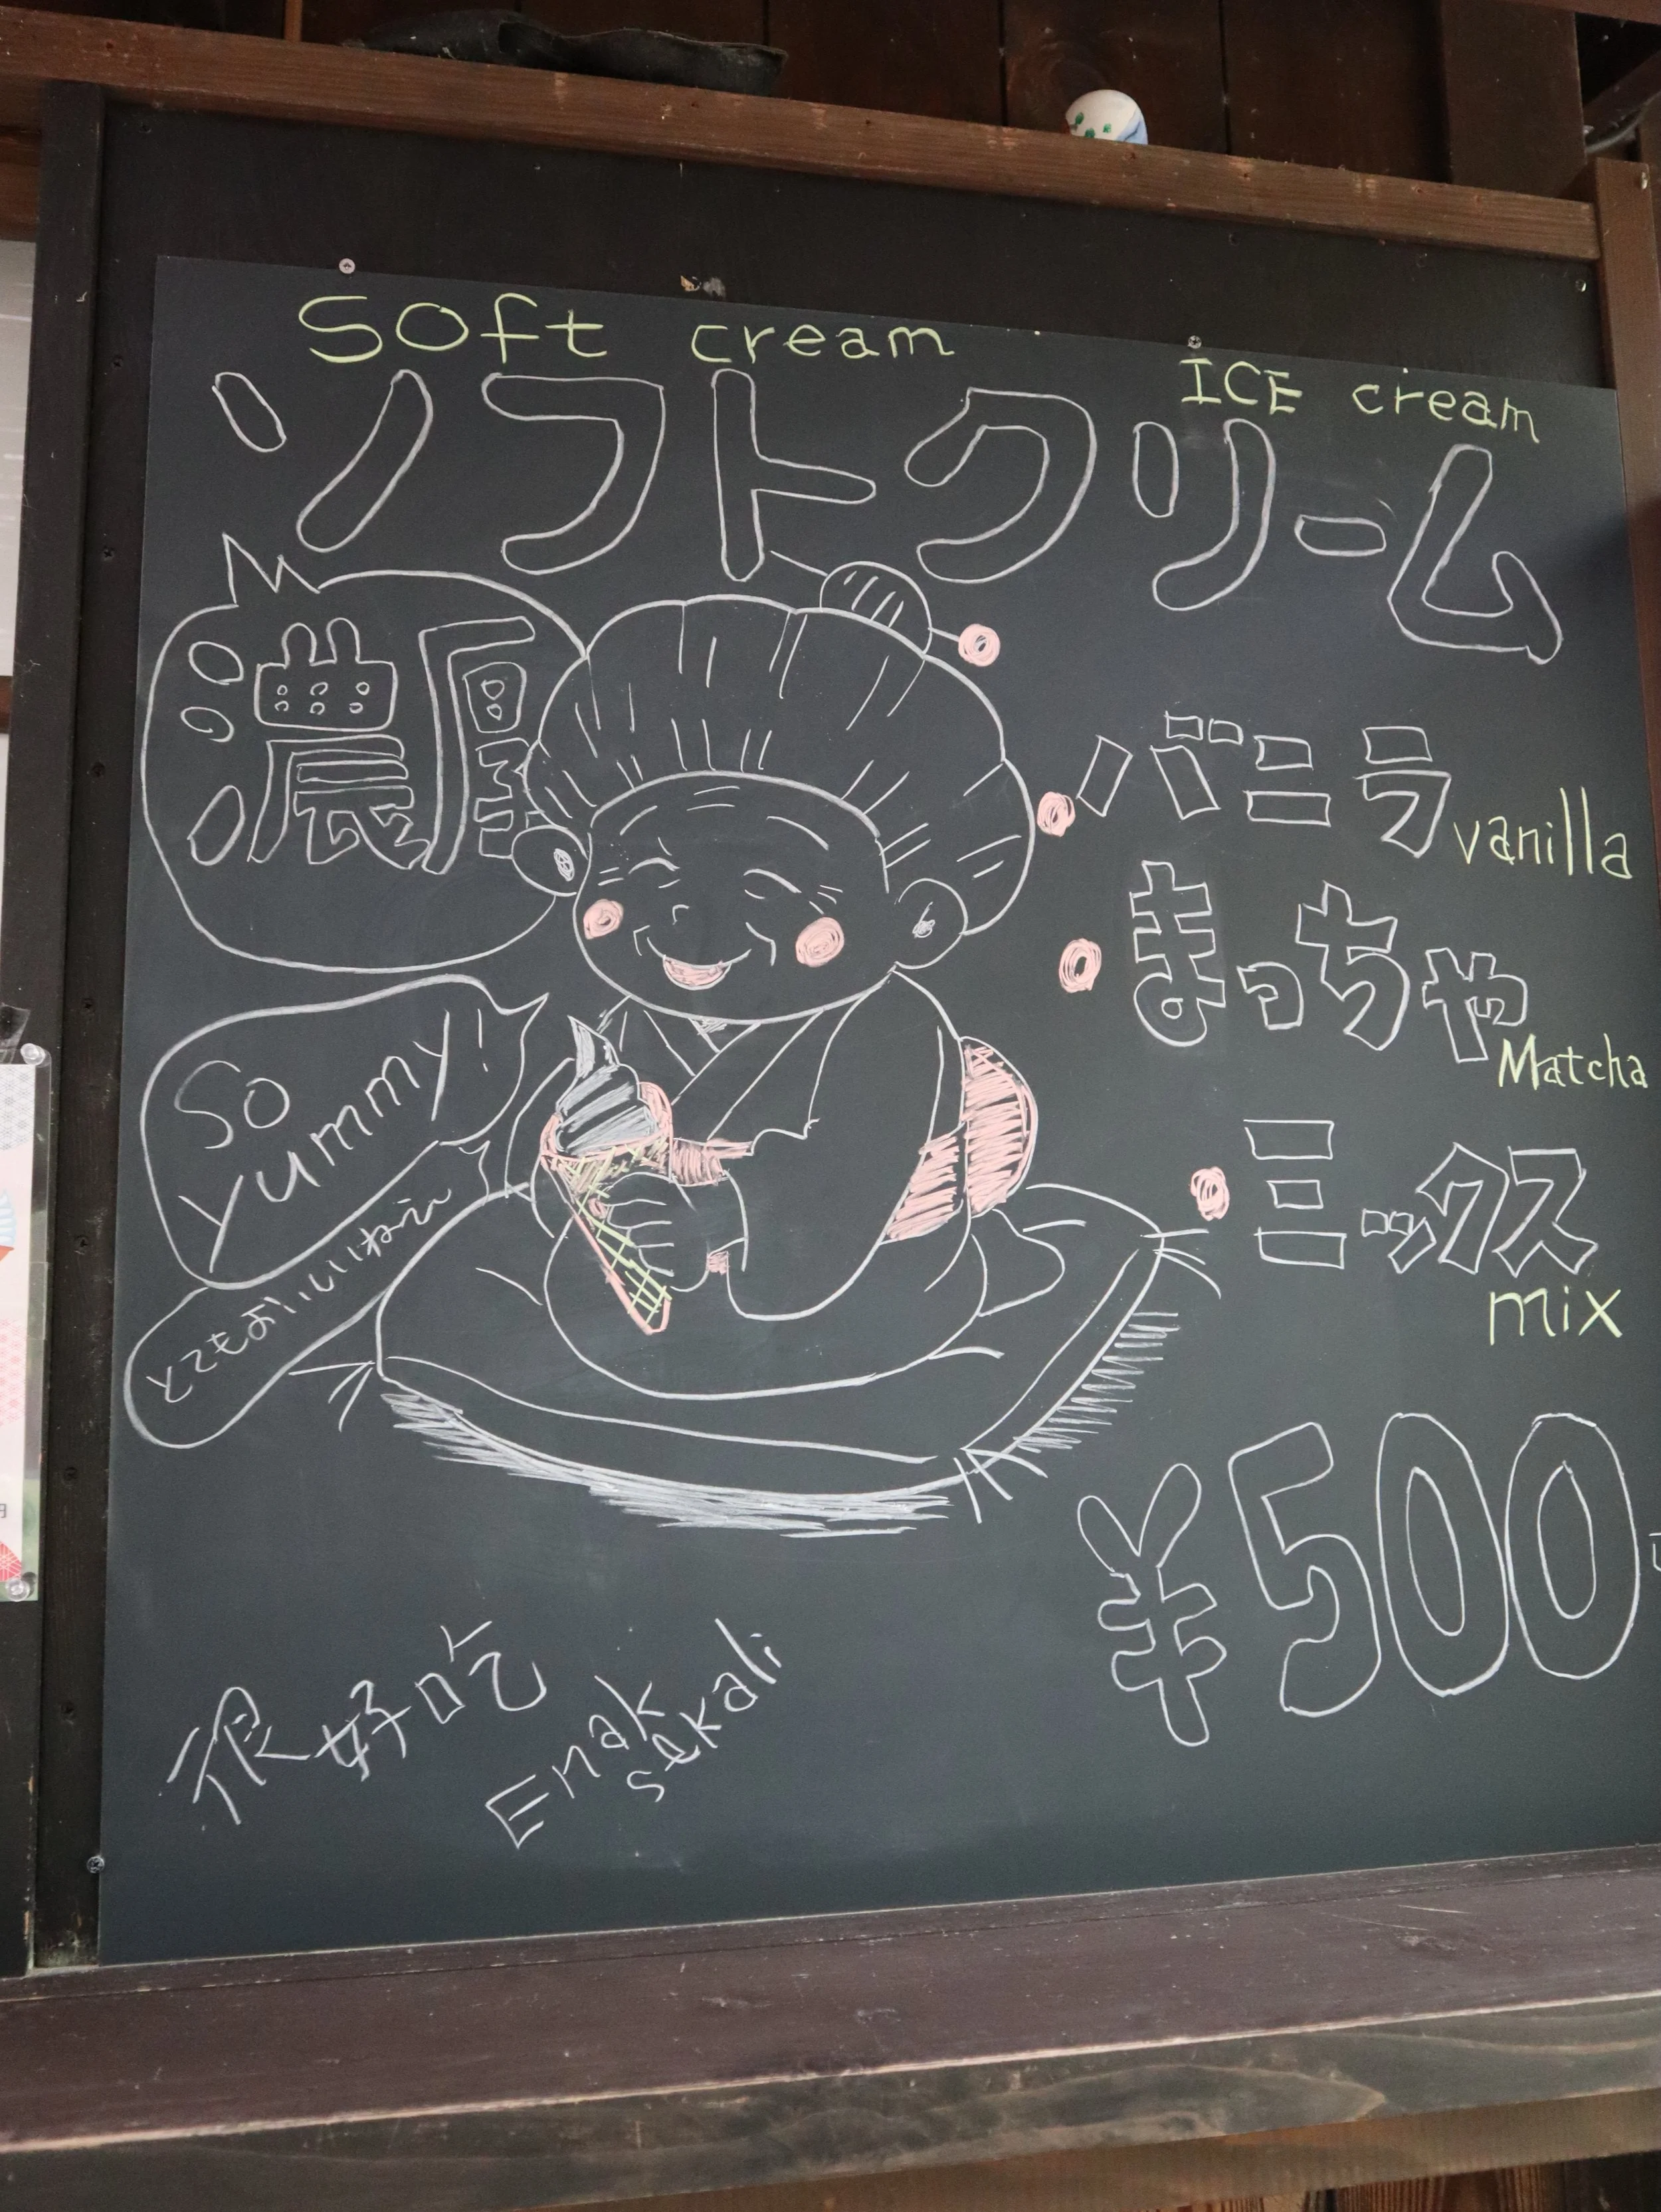 Soft cream
ICE cream
ソフトクリーム
濃厚
バニラ
vanilla
まっちゃ
Matcha
ミックス
mix
So
yummy!
とてもおいしいねえ〜
¥500
很好吃
Enak
sekali